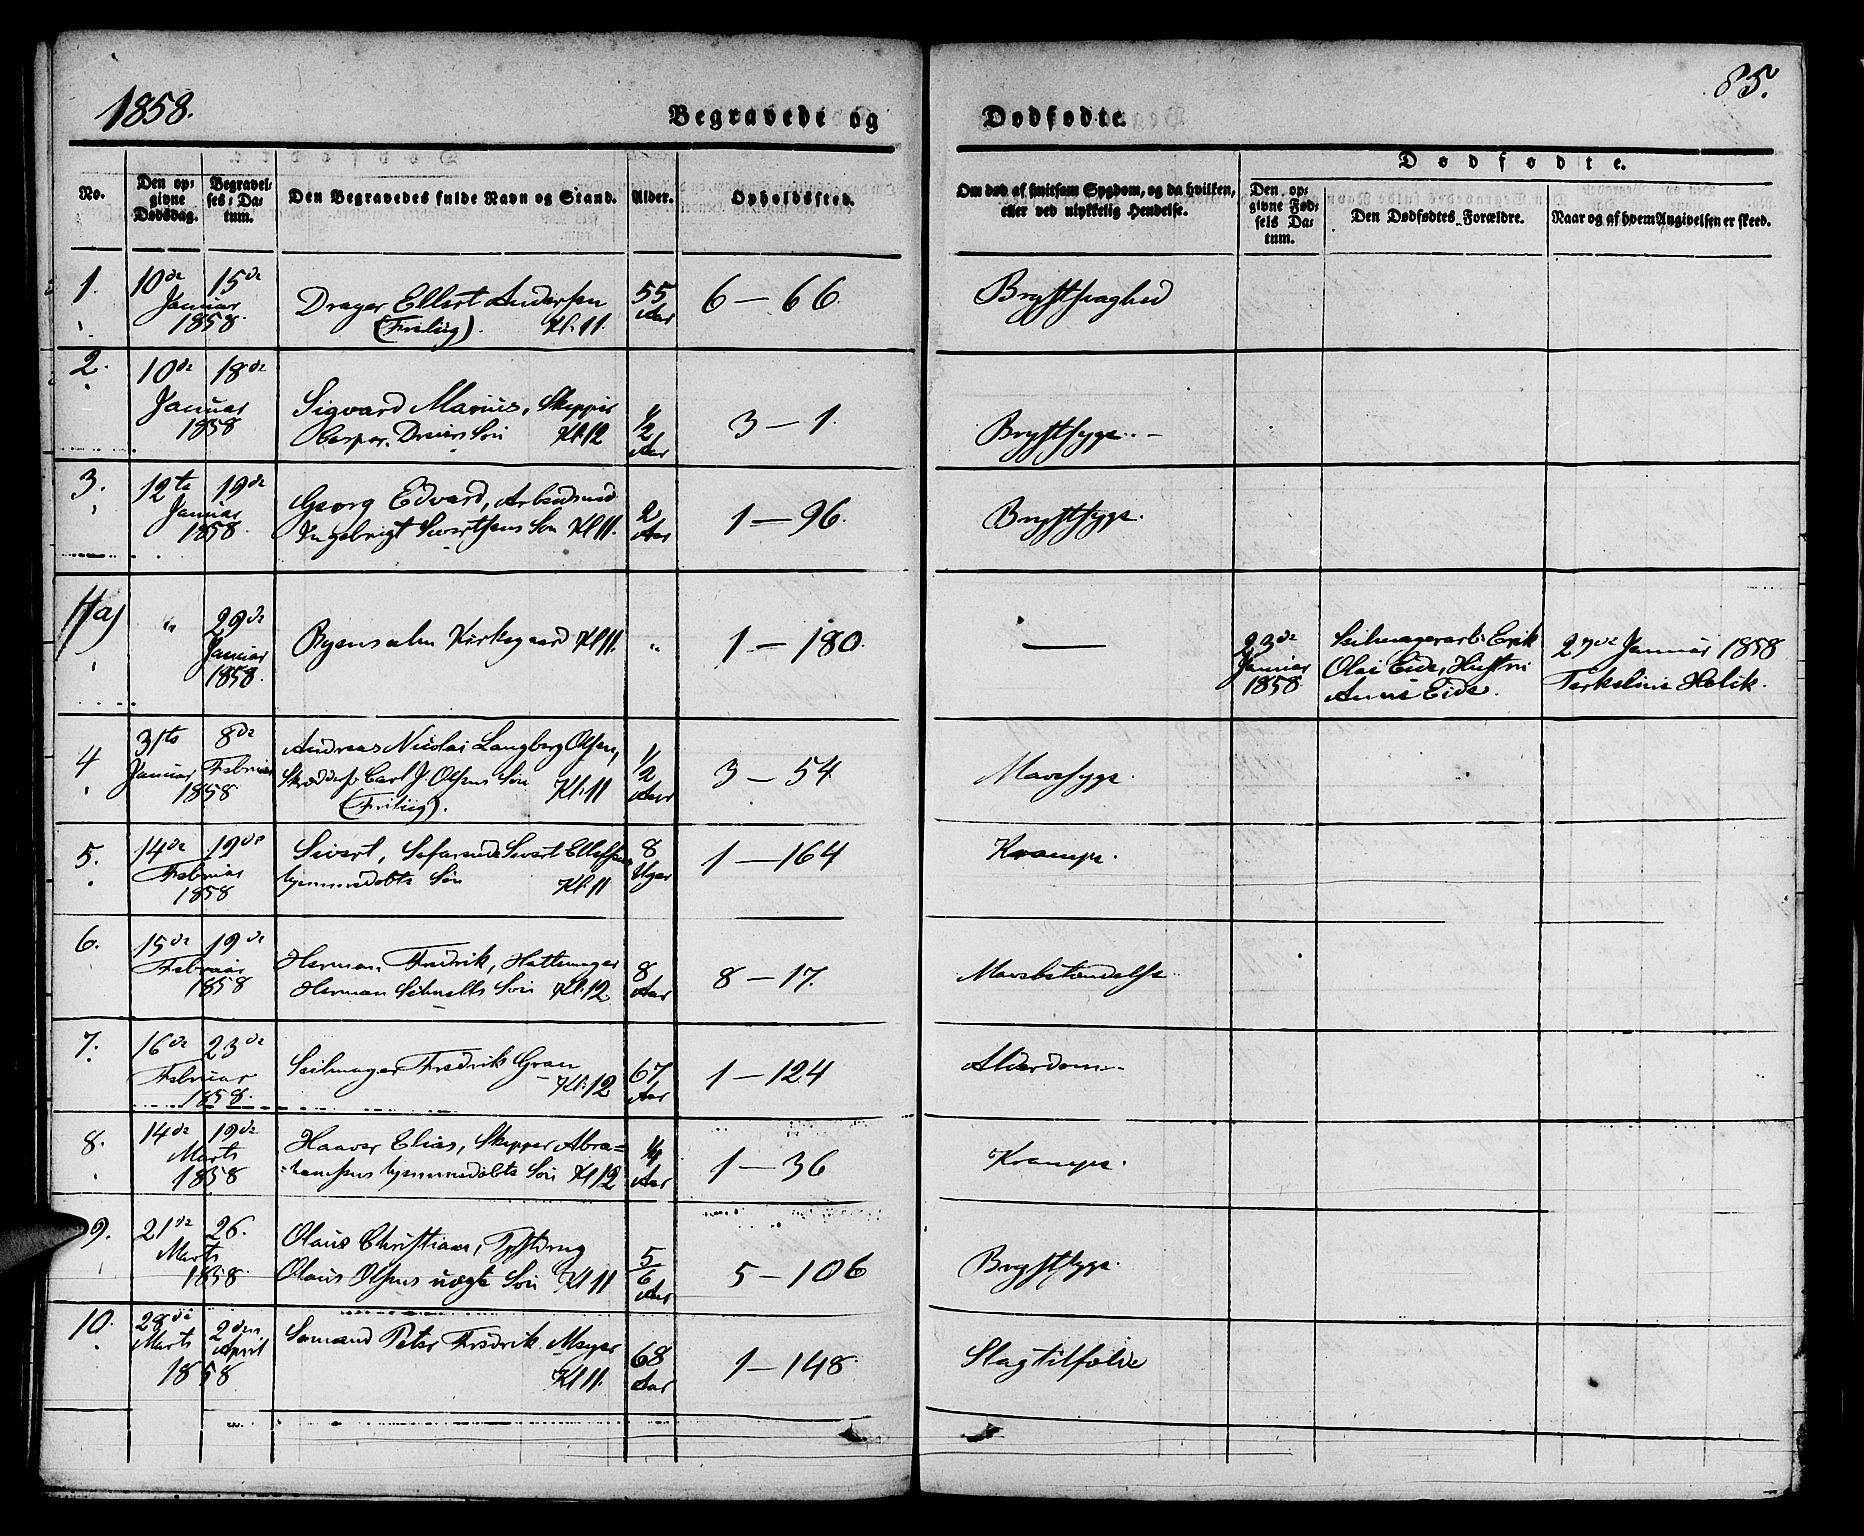 1858.
85.
Begravede og Dødfødte.
No.
Den opgivne Dødsdag.
Begravelses-Datum.
Den Begravedes fulde Navn og Stand.
Alder.
Opholdssted.
Om død af smitsom Sygdom, og da hvilken, eller ved ulykkelig Hendelse.
Dødfødte.
Den opgivne Fødsels Datum.
Den Dødfødtes Forældre.
Naar og af hvem Angivelsen er skeed.
1. 10de 15de
Januar
1858.
Drager Ellert Andersen
(Frelig). Kl: 11.
55 Aar
6 — 66.
Brystsvaghed
2. 10de 18de
Januar
1858
Sigvard Marius, Skipper
Caspar Dreiers Søn Kl: 12
1/2 Aar
3 — 1.
Brystsyge.
3. 12te 19de
Januar
1858.
Georg Edvard, Arbeidsmd
Ingebrigt Sivertsens Søn Kl 11.
2 Aar
1 — 96.
Brystsyge.
4a) " 29de
Januar
1858.
Byens alm Kirkegaard Kl 11.
"
1 — 180.
—
23de
Januar
1858
Seilmagerarb. Erik
Olai Eide, Hustru
Anne Eide.
27de Januar 1858
Terkeline Holck.
4. 31te 8de
Januar Februar
1858
Andreas Nicolai Langberg Olsen,
Carl J. Olsens Søn Kl: 11
1/2 Aar
3 — 54
Mavesyge.
5. 14de 19de
Februar
1858
Sivert, Søfarende Sivert Ellefsens
hjemmedøbte Søn Kl: 11
8 Uger
1 — 164
Krampe.
6. 15de 19de
Februar
1858
Herman Fredrik, Hattemager
Herman Schnells Søn Kl: 12
8 Aar
8 — 17.
Mavebetændelse
7. 16de 23de
Februar
1858.
Seilmager Fredrik Gran
Kl: 12
67 Aar
1 — 124
Alderdom
8. 14de 19de
Marts
1858
Haaver Elias, Skipper Abra-
hamsens hjemmedøbte Søn Kl 12
1/4 Aar
1 — 36
Krampe.
9. 21de 26.
Marts
1858.
Olaus Christian,
Olaus Olsens uægte Søn Kl 11
5/6 Aar
5 — 106
Brystsyge.
10. 28de 2den
Marts April
1858
Sømand Peter Fredrik Meyer
Kl 11.
68 Aar
1 — 148.
Slagtilfælde